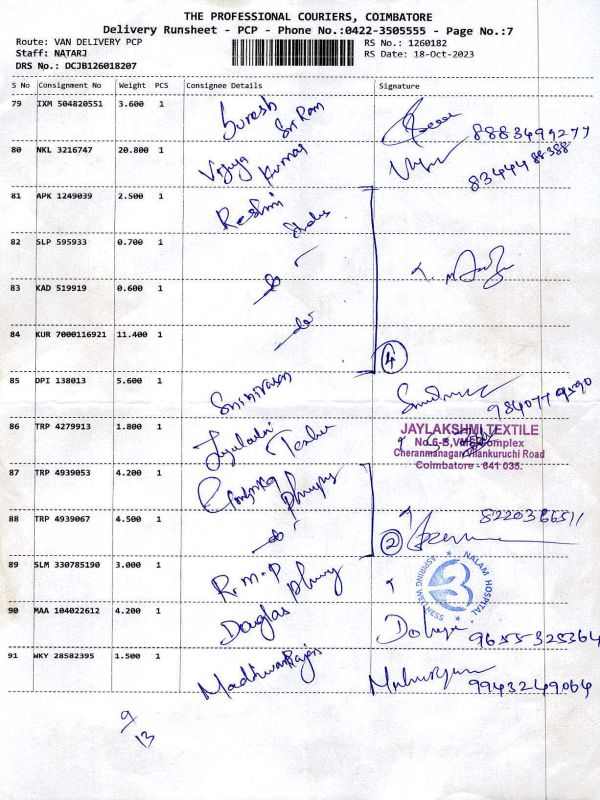 THE PROFESSIONAL COURIERS, COIMBATORE
Delivery Runsheet - PCP - Phone No.:0422-3505555 - Page No.:7
Route: VAN DELIVERY PCP
RS No.: 1260182
Staff: NATARJ
RS Date: 18-Oct-2023
DRS No.: DCJB126018207
S No Consignment No Weight PCS Consignee Details Signature
79 IXM 504820551 3.600 1 Suresh Sri Ram 8883499277
80 NKL 3216747 20.800 1 Vijaya Kumar 8344488388
81 APK 1249039 2.500 1 Reshmi
82 SLP 595933 0.700 1
83 KAD 519919 0.600 1 -do-
84 KUR 7000116921 11.400 1 -do- 4
85 DPI 138013 5.600 1 Srinivasan
86 TRP 4279913 1.800 1
JAYLAKSHMI TEXTILE
Complex
Cheranmanagar, Vilankuruchi Road
Coimbatore - 641 035.
87 TRP 4939053 4.200 1
88 TRP 4939067 4.500 1 -do- 2 8220366511
89 SLM 330785190 3.000 1 R.M.P
NALAM HOSPITAL
ASPIRING WELLNESS
90 MAA 104022612 4.200 1 Douglas 9655325364
91 WKY 28582395 1.500 1 Madhivan Rajan 9943249064
9/13